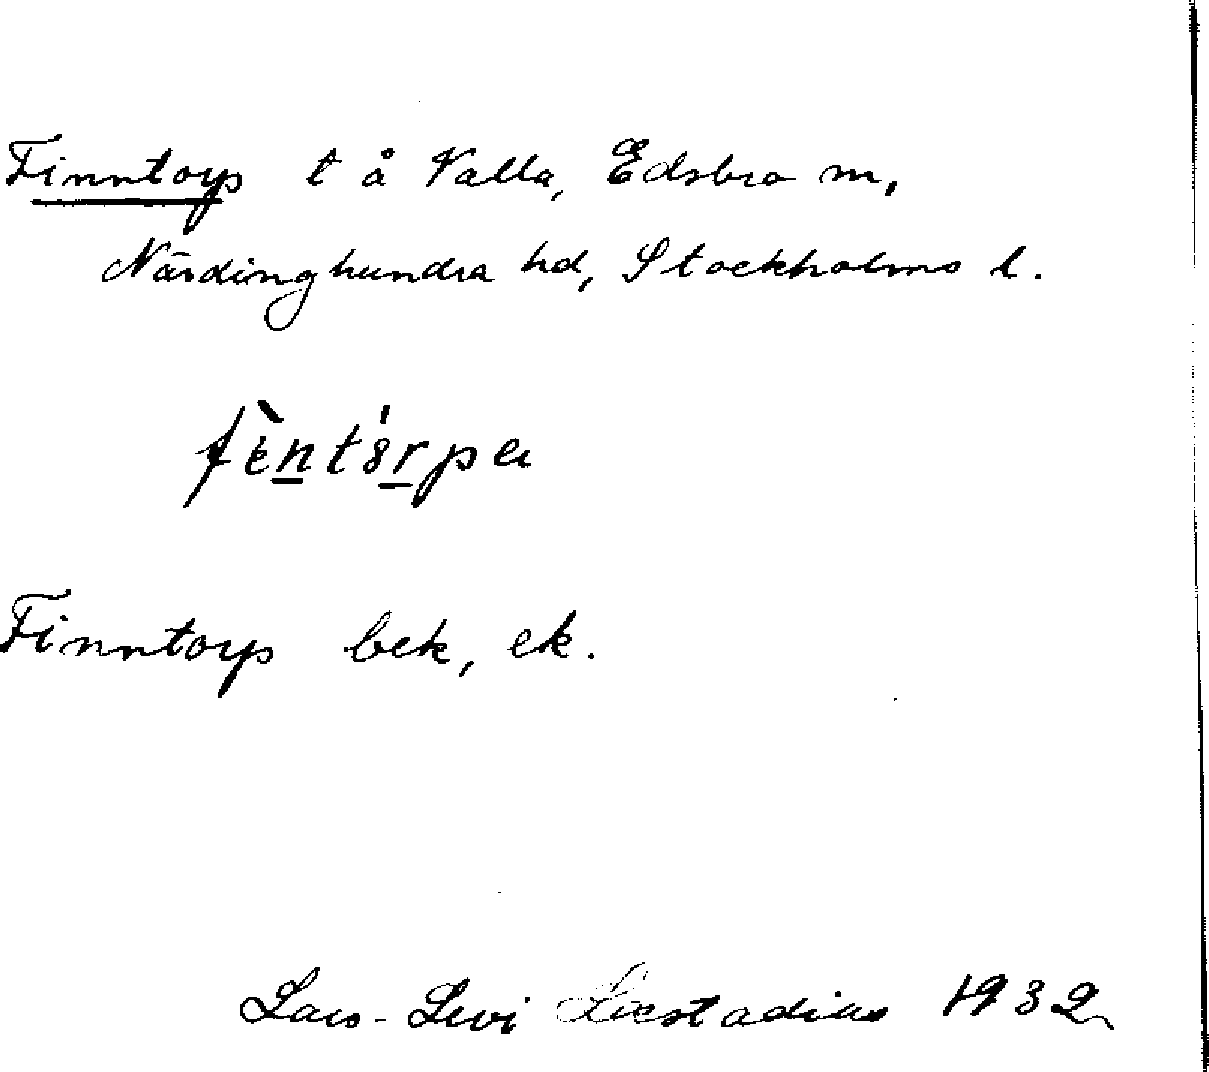 Finntorp t å Valla, Edsbro sn,
Närdinghundra hd, Stockholms l.
Finntorp bek, ek.
Lars-Levi Læstadius 1932